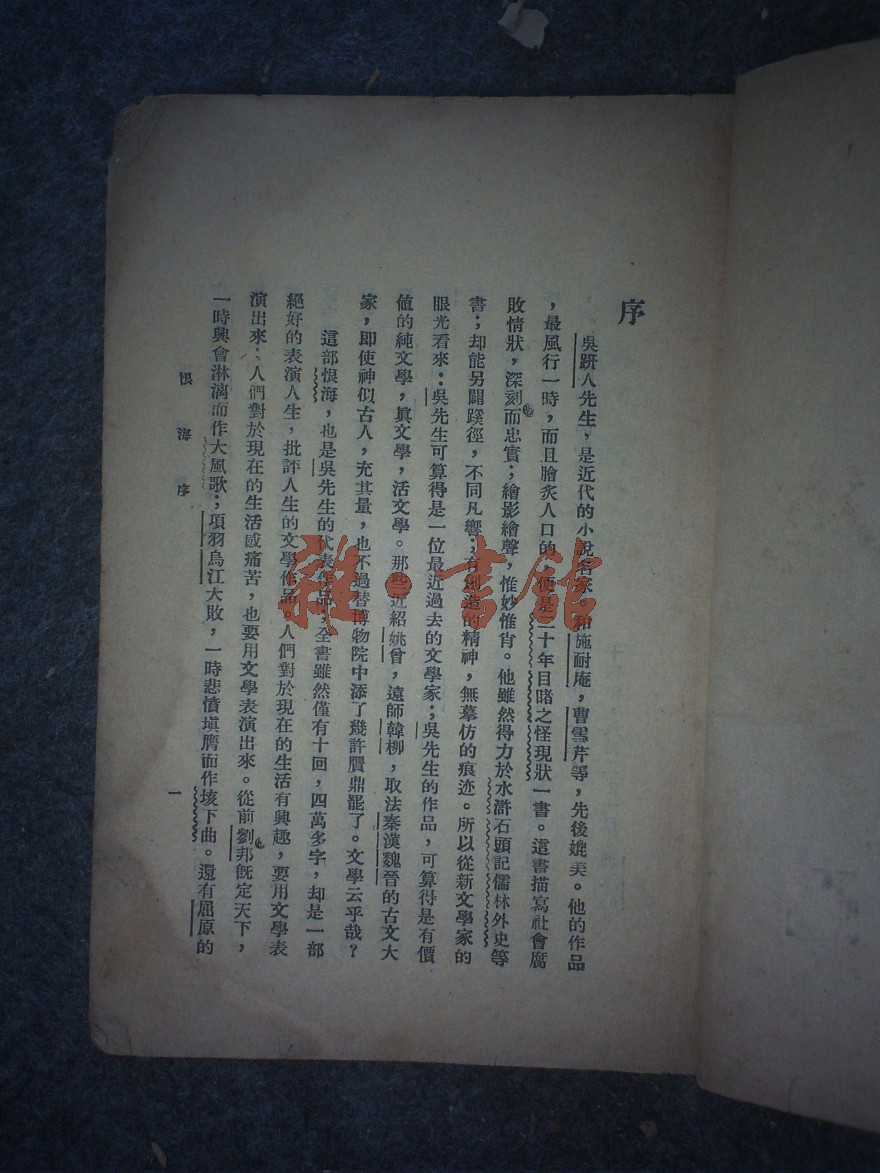 序
吳趼人先生，是近代的小說名家，和施耐庵，曹雪芹等，先後媲美。他的作品
，最風行一時，而且膾炙人口的，便是二十年目睹之怪現狀一書。這書描寫社會腐
敗情狀，深刻而忠實；繪影繪聲，惟妙惟肖。他雖然得力於水滸石頭記儒林外史等
書；却能另闢蹊徑，不同凡響；有創造的精神，無摹仿的痕迹。所以從新文學家的
眼光看來：吳先生可算得是一位最近過去的文學家；吳先生的作品，可算得是有價
值的純文學，眞文學，活文學。那些近紹姚曾，遠師韓柳，取法秦漢魏晉的古文大
家，即使神似古人，充其量，也不過替博物院中添了幾許贋鼎罷了。文學云乎哉？
這部恨海，也是吳先生的代表作品，全書雖然僅有十回，四萬多字，却是一部
絕好的表演人生，批評人生的文學作品。人們對於現在的生活有興趣，要用文學表
演出來；人們對於現在的生活感痛苦，也要用文學表演出來。從前劉邦旣定天下，
一時興會淋漓而作大風歌；項羽烏江大敗，一時悲憤塡膺而作垓下曲。還有屈原的
恨海序
一
雜·書館